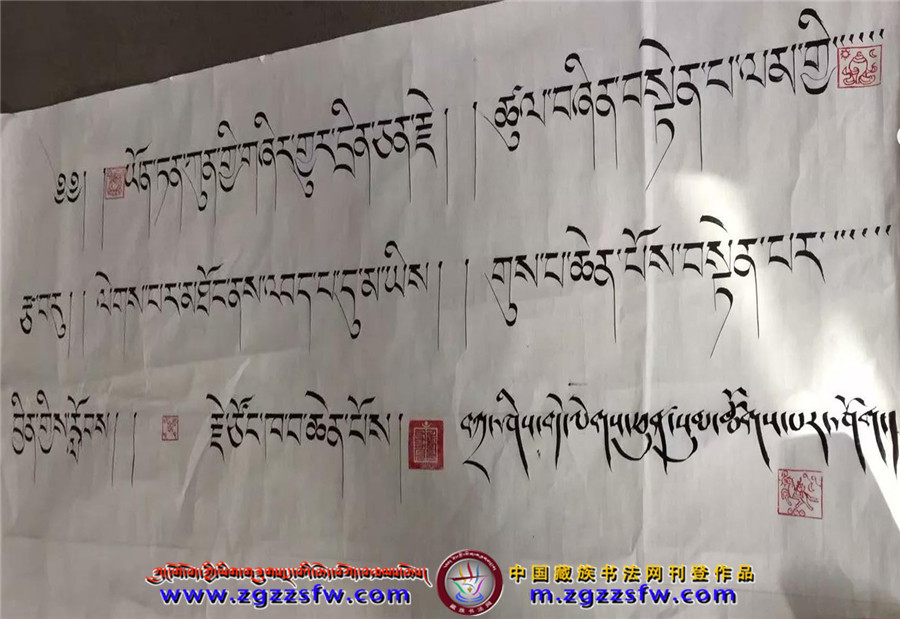 ༄༅། །ཡོན་ཏན་ཀུན་གྱི་གཞིར་གྱུར་དྲིན་ཅན་རྗེ། །ཚུལ་བཞིན་བསྟེན་པ་ལམ་གྱི་
རྩ་བར། །ལེགས་པར་མཐོང་ནས་འབད་པ་དུ་མ་ཡིས། །གུས་པ་ཆེན་པོས་བསྟེན་པར་
བྱིན་གྱིས་རློབས། །རྗེ་ཙོང་ཁ་པ་ཆེན་པོས།
བཀྲ་ཤིས་བདེ་ལེགས་ཕུན་སུམ་ཚོགས་པར་ཤོག།
中国藏族书法网刊登作品
www.zgzzsfw.com
m.zgzzsfw.com
藏族书法网